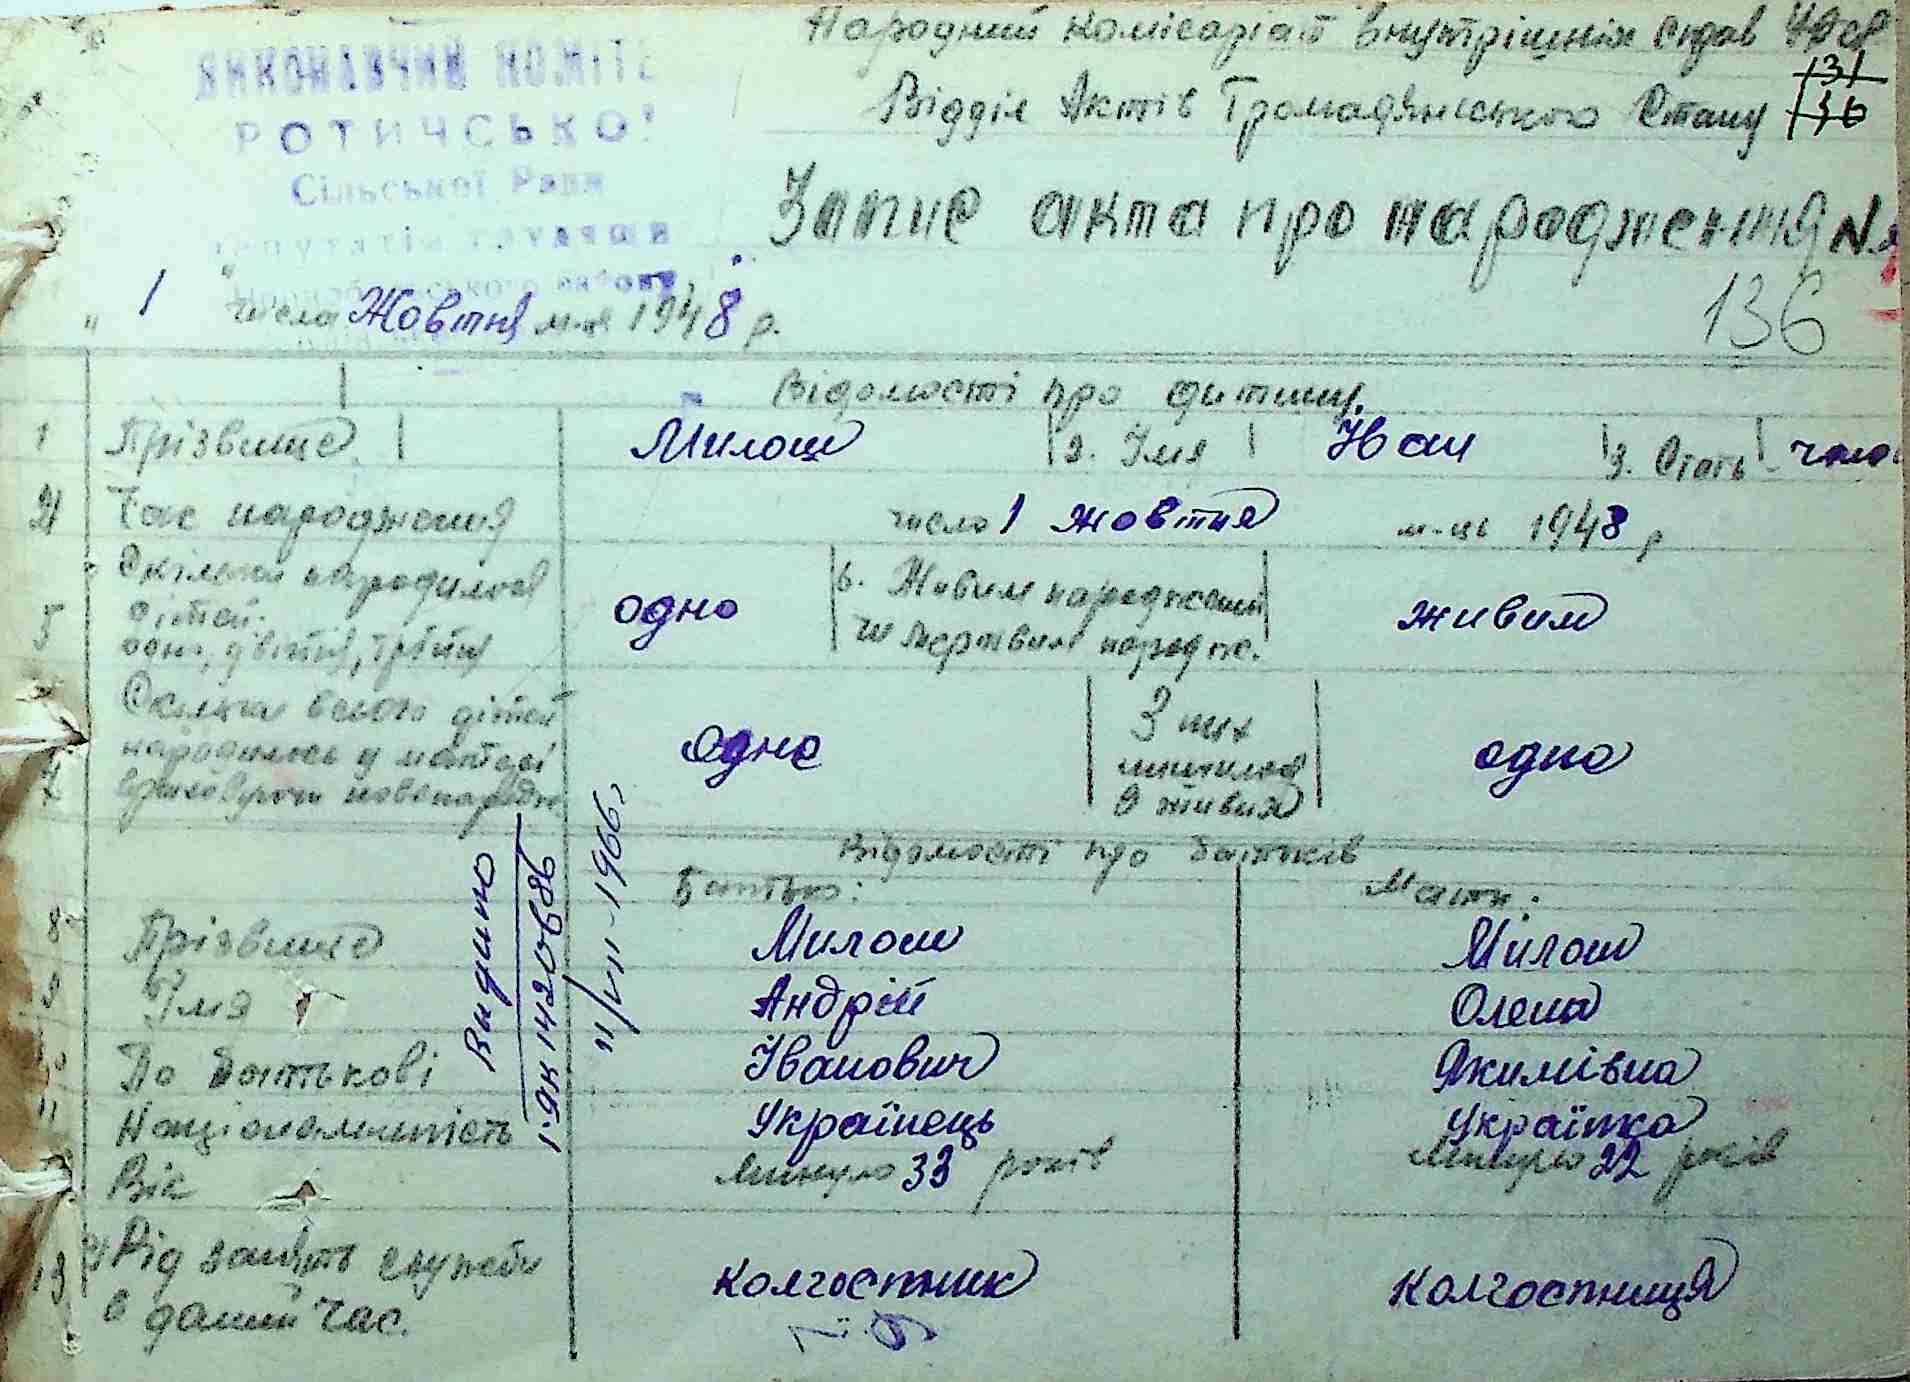 Народний комісаріат внутрішніх справ УРСР
131
136
Відділ Актів Громадянського Стану
ВИКОНАВЧИЙ КОМІТЕ
РОТИЧСЬКОЇ
Сільської Ради
депутатів трудящи
Запис акта про народження №
136
" 1 " числа Жовтня м-ця 1948 р.
Відомості про дитину
1 Прізвище Милош 2. Імя Іван 3. Стать чоло
4 Час народження число 1 жовтня м-ць 1948 р
5 Скільки народилося дітей. одно, двійня, трійня одно 6. Живим народжений чи мертвим народж. живим
7 Скільки всього дітей народилось у матері враховуючи новонародж. одно З них лишилося в живих одно
Відомості про батьків
Батько: Мати:
8 Прізвище Милош Милош
9 Імя Андрій Олена
10 По батькові Іванович Якимівна
11 Національність Українець Українка
12 Вік минуло 33 років минуло 22 років
13 Рід занять служби в даний час. колгоспник колгоспниця
Видано
1966г